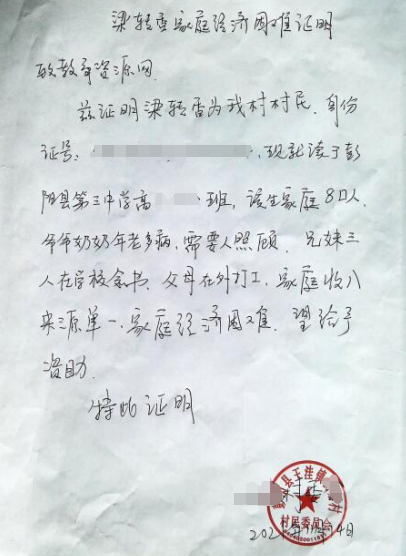 梁转香家庭经济困难证明
致教育资源网
兹证明梁转香为我村村民，身份
证号：，现就读于彭
阳县第三中学高 班，该生家庭8口人，
爷爷奶奶年老多病，需要人照顾，兄妹三
人在学校念书，父母在外打工，家庭收入
来源单一，家庭经济困难，望给予
资助。
特此证明
县王洼镇 村
村民委员会